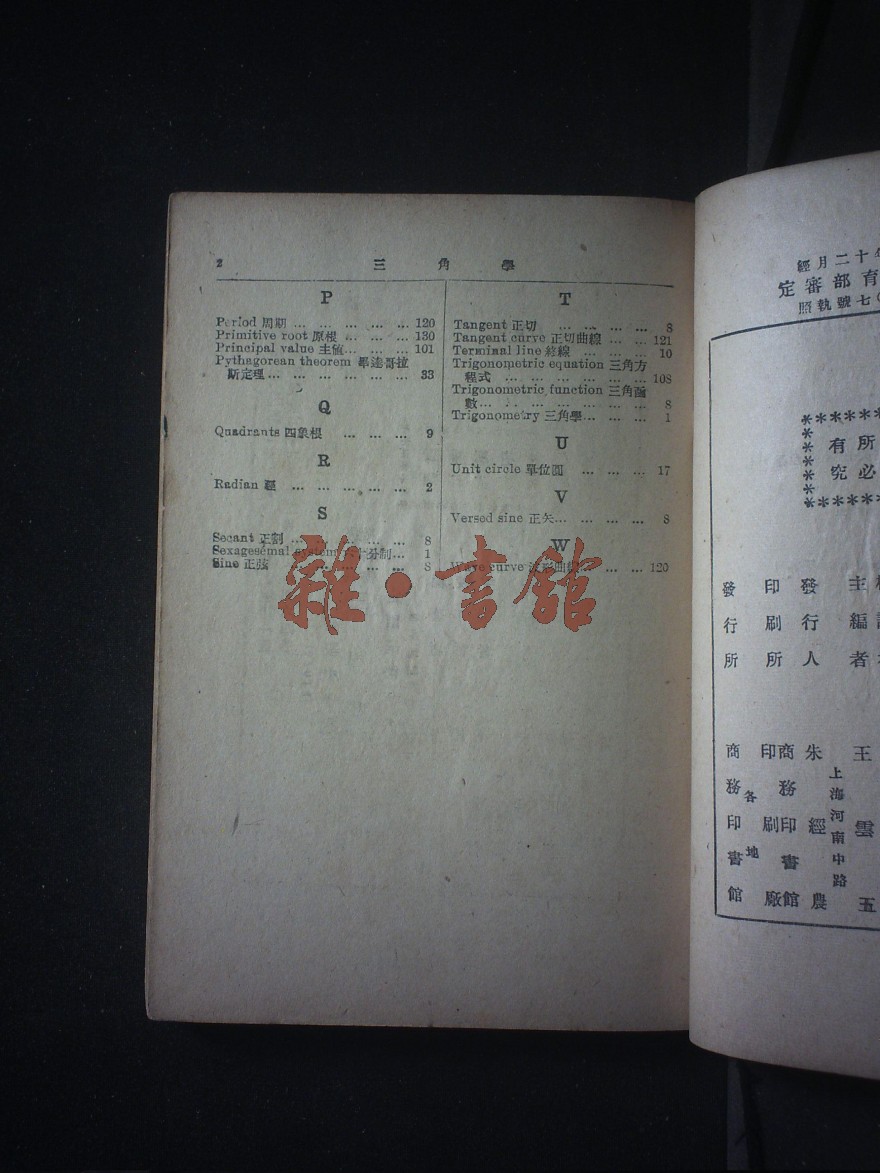 2 三角學
P
Period 周期 ... ... ... ... ... 120
Primitive root 原根 ... ... ... ... 130
Principal value 主值... ... ... ... 101
Pythagorean theorem 畢達哥拉
斯定理... ... ... ... ... ... ... 33
Q
Quadrants 四象根 ... ... ... 9
R
Radian 䡄 ... ... ... ... ... 2
S
Secant 正割 ... ... ... ... ... ... 8
Sexagesemal system 六十分制... 1
Sine 正弦 ... ... ... ... 8
T
Tangent 正切 ... ... ... ... 8
Tangent curve 正切曲線 ... ... 121
Terminal line 終線 ... ... ... 10
Trigonometric equation 三角方
程式 ... ... ... ... ... ... 108
Trigonometric function 三角函
數... ... ... ... ... ... ... 8
Trigonometry 三角學... ... ... 1
U
Unit circle 單位圓 ... ... ... 17
V
Versed sine 正矢... ... ... ... 8
W
Wave curve 波形曲線... ... ... 120
雜·書館
十二月經
育部審定
七號執照
所有
必究
主編者 王雲五
發行人 朱經農
上海河南中路
印刷所 商務印書館
印刷廠
發行所 商務印書館
各地